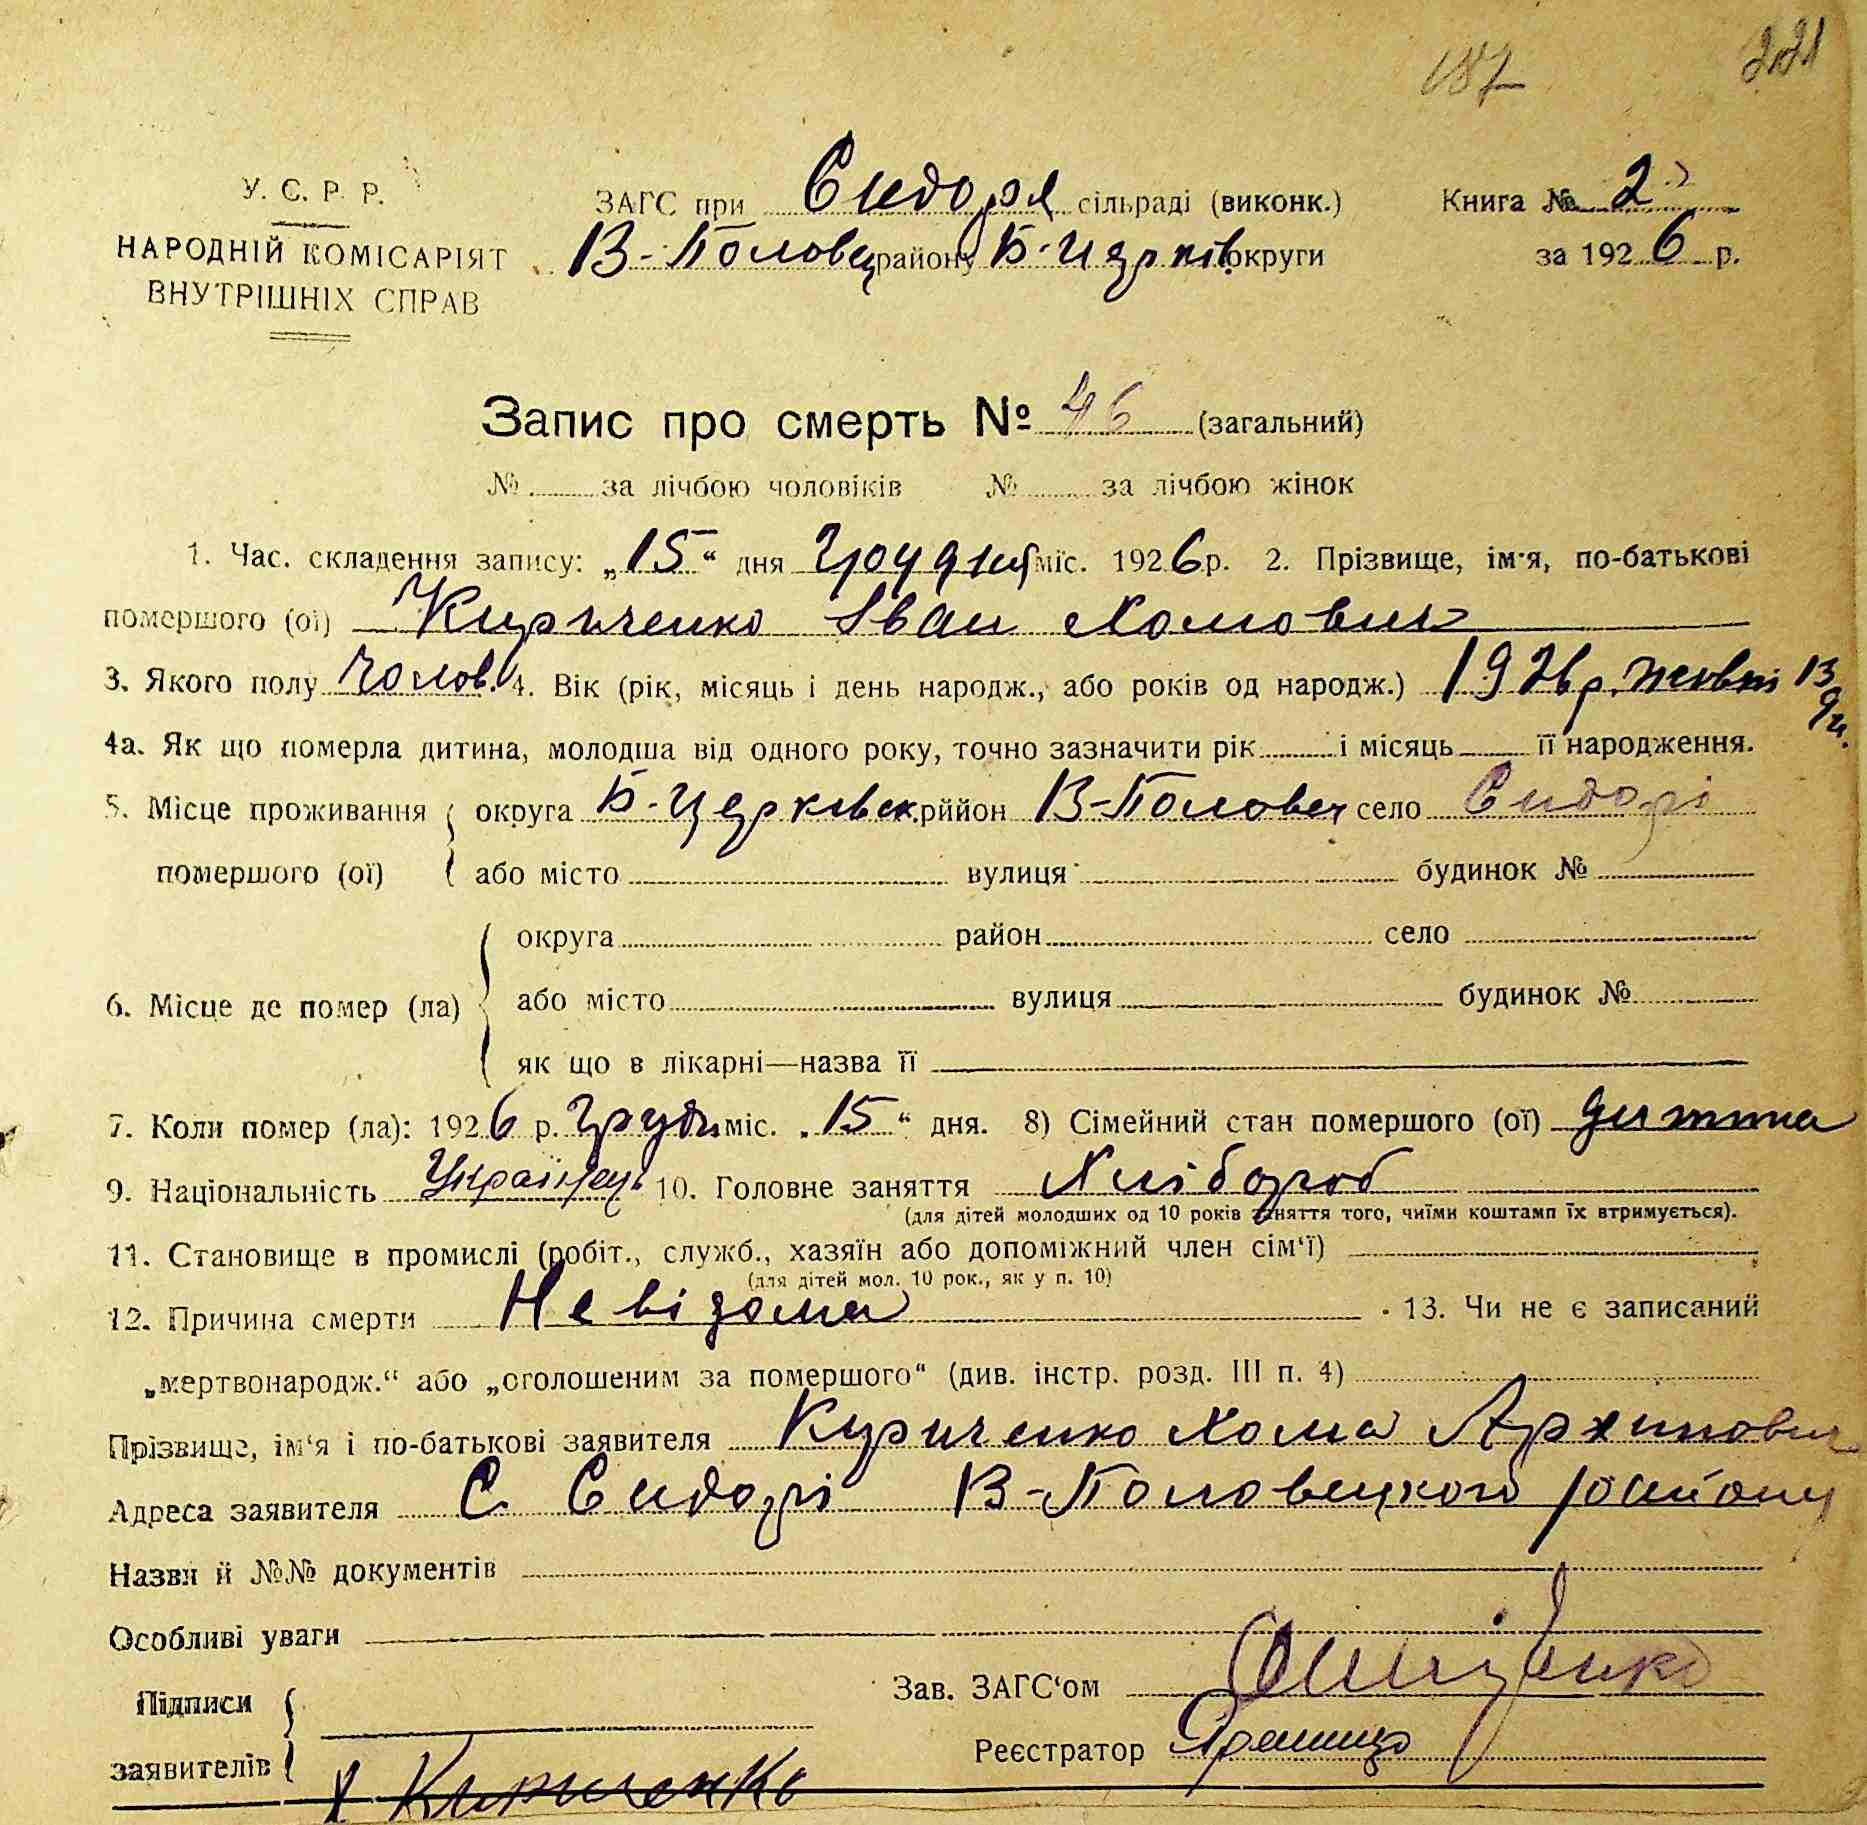 187 221
У. С. Р. Р. ЗАГС при Сидоря сільраді (виконк.) Книга № 2
НАРОДНІЙ КОМІСАРІЯТ В-Половец району Б-Церків округи за 1926 р.
ВНУТРІШНІХ СПРАВ
Запис про смерть № 46 (загальний)
№ за лічбою чоловіків № за лічбою жінок
1. Час. складення запису: „15“ дня Грудня міс. 1926 р. 2. Прізвище, ім'я, по-батькові
помершого (ої) Кириченко Іван Хомович
3. Якого полу Чолов. 4. Вік (рік, місяць і день народж., або років од народж.) 1926 р. жовтн 13
4а. Як що померла дитина, молодша від одного року, точно зазначити рік і місяць її народження.
5. Місце проживання округа Б-Церковск. рййон В-Половеч село Сидорі
помершого (ої) або місто вулиця будинок №
округа район село
6. Місце де помер (ла) або місто вулиця будинок №
як що в лікарні—назва її
7. Коли помер (ла): 1926 р. Грудн міс. „15“ дня. 8) Сімейний стан помершого (ої) дитина
9. Національність Українець 10. Головне заняття Хлібороб
(для дітей молодших од 10 років заняття того, чиїми коштами їх втримується).
11. Становище в промислі (робіт., служб., хазяїн або допоміжний член сім'ї)
(для дітей мол. 10 рок., як у п. 10)
12. Причина смерти Невідома 13. Чи не є записаний
„мертвонародж.“ або „оголошеним за помершого“ (див. інстр. розд. III п. 4)
Прізвище, ім'я і по-батькові заявителя Кириченко Хома Архипович
Адреса заявителя С. Сидорі В-Половецкого району
Назви й №№ документів
Особливі уваги
Підписи Зав. ЗАГС'ом
заявителів Х Кириченко Реєстратор